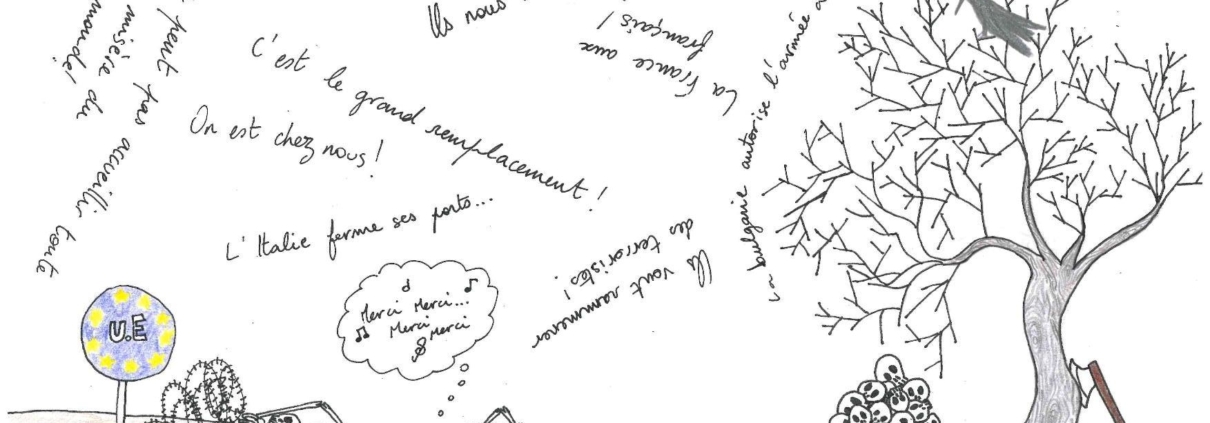 peut pas accueillir toute
misère du
monde!
C'est le grand remplacement !
On est chez nous !
L'Italie ferme ses ports...
Ils nous
La France aux
français !
Ils vont
des terroristes !
La bulgarie autorise l'armée à
U.E
Merci Merci...
Merci
Merci